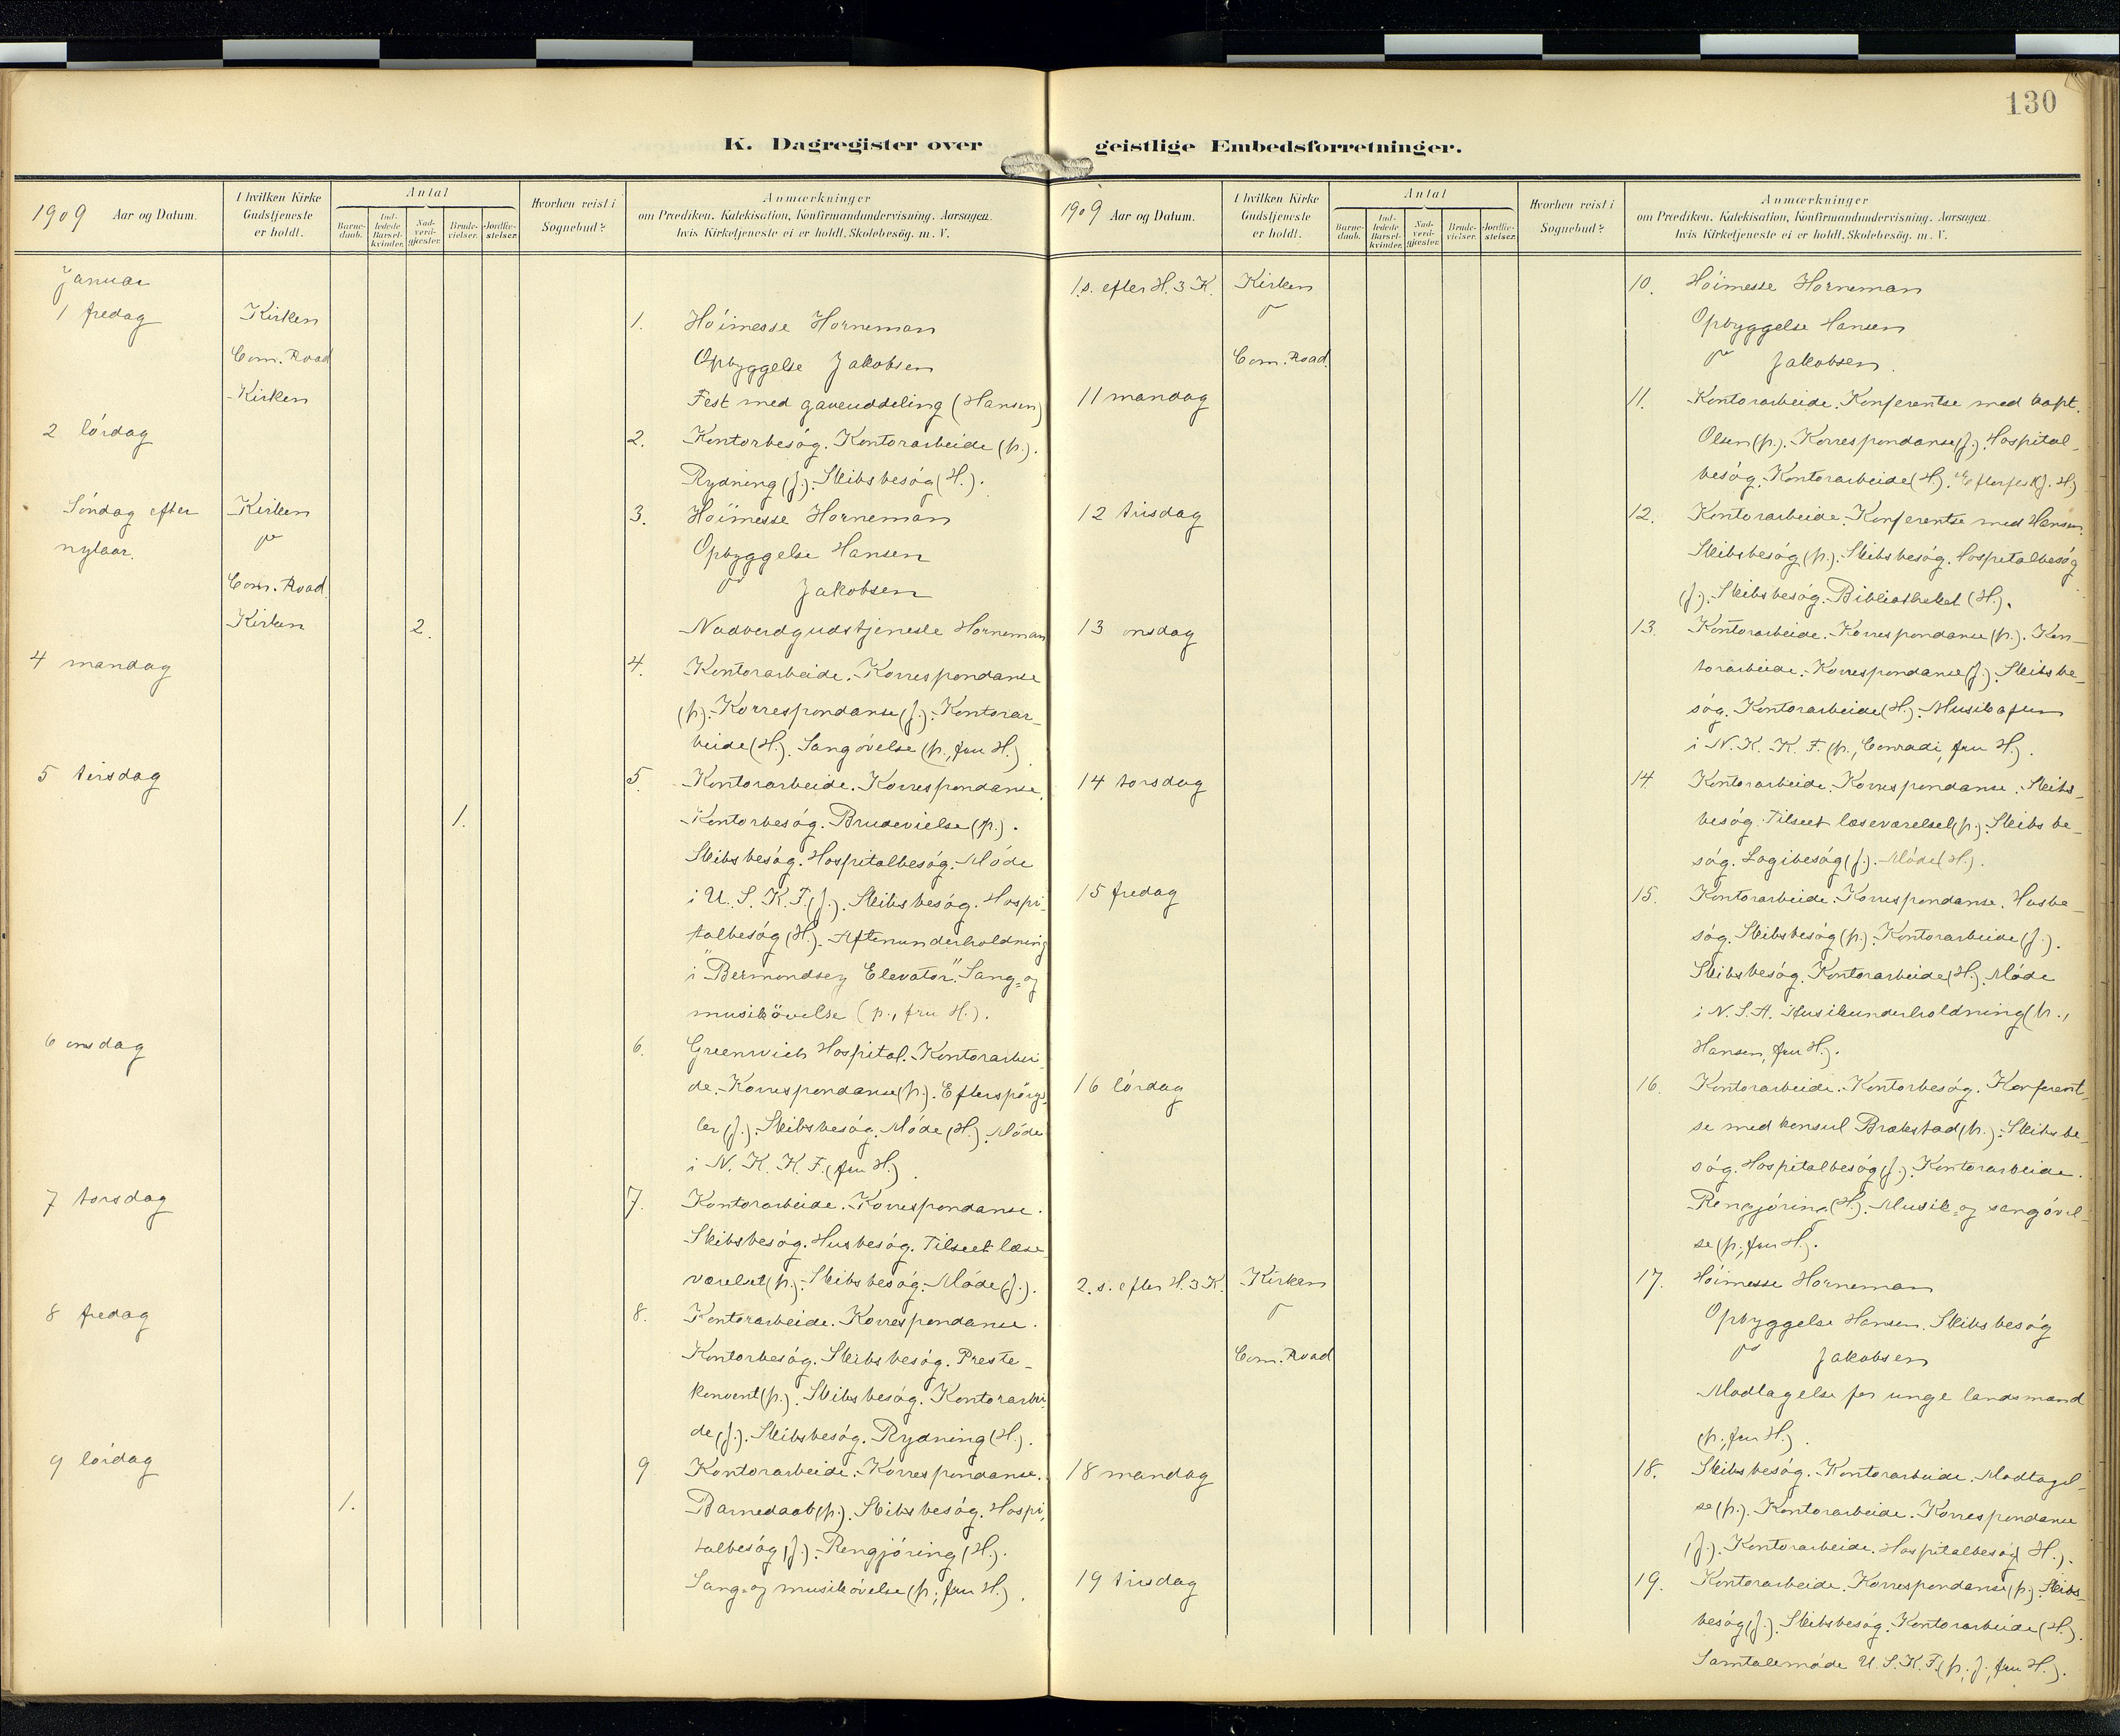 130
K. Dagregister over geistlige Embedsforretninger.
1909 Aar og Datum.
I hvilken Kirke Gudstjeneste er holdt.
Antal
Barne-daab.
Ind-ledede Barsel-kvinder.
Nad-verd-gjæster.
Brude-vielser.
Jordfæ-stelser.
Hvorhen reist i Sognebud?
Anmærkninger
om Prædiken, Katekisation, Konfirmandundervisning. Aarsagen,
hvis Kirketjeneste ei er holdt, Skolebesög. m. V.
Januar
1 fredag Kirken 1. Höimesse Horneman
Com. Road Opbyggelse Jakobsen
Kirken Fest med gaveuddeling (Hansen)
2 lördag 2. Kontorbesög. Kontorarbeide (p.).
Rydning (J.). Skibsbesög (H.).
Söndag efter Kirken 3. Höimesse Horneman
nytaar. " Opbyggelse Hansen
Com. Road " Jakobsen
Kirken 2. Nadverdgudstjeneste Horneman
4 mandag 4. Kontorarbeide. Korrespondanse
(p.). Korrespondanse (J.). Kontorar-
beide (H.). Sangövelse (p., fru H.).
5 tirsdag 5. Kontorarbeide. Korrespondanse.
1. Kontorbesög. Brudevielse (p.).
Skibsbesög. Hospitalbesög. Möde
i U. S. K. F. (J.). Skibsbesög. Hospi-
talbesög (H.). Aftenunderholdning
i "Bermondsey Elevator". Sang- og
musikövelse (p., fru H.).
6 onsdag 6. Greenwich Hospital. Kontorarbei-
de. Korrespondanse (p.). Efterspörgs-
ler (J.). Skibsbesög. Möde (H.). Möde
i N. K. K. F. (fru H.).
7 torsdag 7. Kontorarbeide. Korrespondanse.
Skibsbesög. Husbesög. Tilseet læse-
værelset (p.). Skibsbesög. Möde (J.).
8 fredag 8. Kontorarbeide. Korrespondanse.
Kontorbesög. Skibsbesög. Preste-
konvent (p.). Skibsbesög. Kontorarbei-
de (J.). Skibsbesög. Rydning (H.).
9 lördag 9 Kontorarbeide. Korrespondanse.
1. Barnedaab (p.). Skibsbesög. Hospi-
talbesög (J.). Rengjöring (H.).
Sang- og musikövelse (p., fru H.).
1909 Aar og Datum.
I hvilken Kirke Gudstjeneste er holdt.
Antal
Barne-daab.
Ind-ledede Barsel-kvinder.
Nad-verd-gjæster.
Brude-vielser.
Jordfæ-stelser.
Hvorhen reist i Sognebud?
Anmærkninger
om Prædiken, Katekisation, Konfirmandundervisning. Aarsagen,
hvis Kirketjeneste ei er holdt, Skolebesög. m. V.
1. s. efter H. 3 K. Kirken 10. Höimesse Horneman
" Opbyggelse Hansen
Com. Road " Jakobsen.
11 mandag 11. Kontorarbeide. Konferentse med kapt.
Olsen (p.). Korrespondanse (J.). Hospital-
besög. Kontorarbeide (H.). (J. H.)
12 tirsdag 12. Kontorarbeide. Konferentse med Hansen.
Skibsbesög (p.). Skibsbesög. Hospitalbesög
(J.). Skibsbesög. Bibliotheket (H.).
13 onsdag 13. Kontorarbeide. Korrespondanse (p.). Kon-
torarbeide. Korrespondanse (J.). Skibsbe-
sög. Kontorarbeide (H.). Musikaften
i N. K. K. F. (p., Conradi, fru H.).
14 torsdag 14. Kontorarbeide. Korrespondanse. Skibs-
besög. Tilseet læseværelset (p.). Skibsbe-
sög. Logibesög (J.). Möde (H.).
15 fredag 15. Kontorarbeide. Korrespondanse. Husbe-
sög. Skibsbesög (p.). Kontorarbeide (J.).
Skibsbesög. Kontorarbeide (H.). Möde
i N. S. A. Musikunderholdning (p.,
Hansen, fru H.).
16 lördag 16. Kontorarbeide. Kontorbesög. Konferent-
se med konsul Brækstad (p.). Skibsbe-
sög. Hospitalbesög (J.). Kontorarbeide.
Rengjöring (H.). Musik- og sangövel-
se (p., fru H.).
2. s. efter H. 3 K. Kirken 17. Höimesse Horneman
" Opbyggelse Hansen. Skibsbesög
Com. Road " Jakobsen
Modtagelse for unge landsmænd
(p., fru H.).
18 mandag 18. Skibsbesög. Kontorarbeide. Modtagel-
se (p.). Kontorarbeide. Korrespondanse
(J.). Kontorarbeide. Hospitalbesög (H.).
19 tirsdag 19. Kontorarbeide. Korrespondanse (p.). Skibs-
besög (J.). Skibsbesög. Kontorarbeide (H.).
Samtalemöde U. S. K. F. (p., J., fru H.).